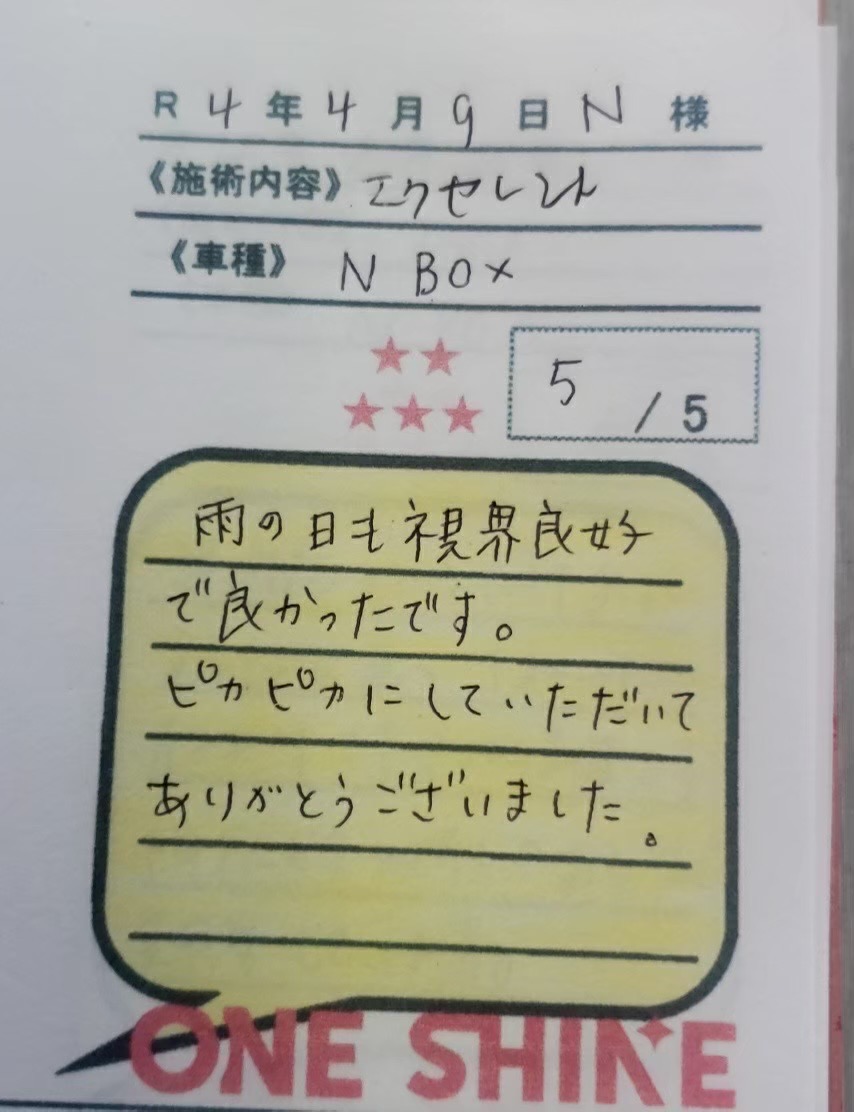 R 4 年 4 月 9 日 N 様
《施術内容》エクセレント
《車種》 N BOX
5 / 5
雨の日も視界良好
で良かったです。
ピカピカにしていただいて
ありがとうございました。
ONE SHINE